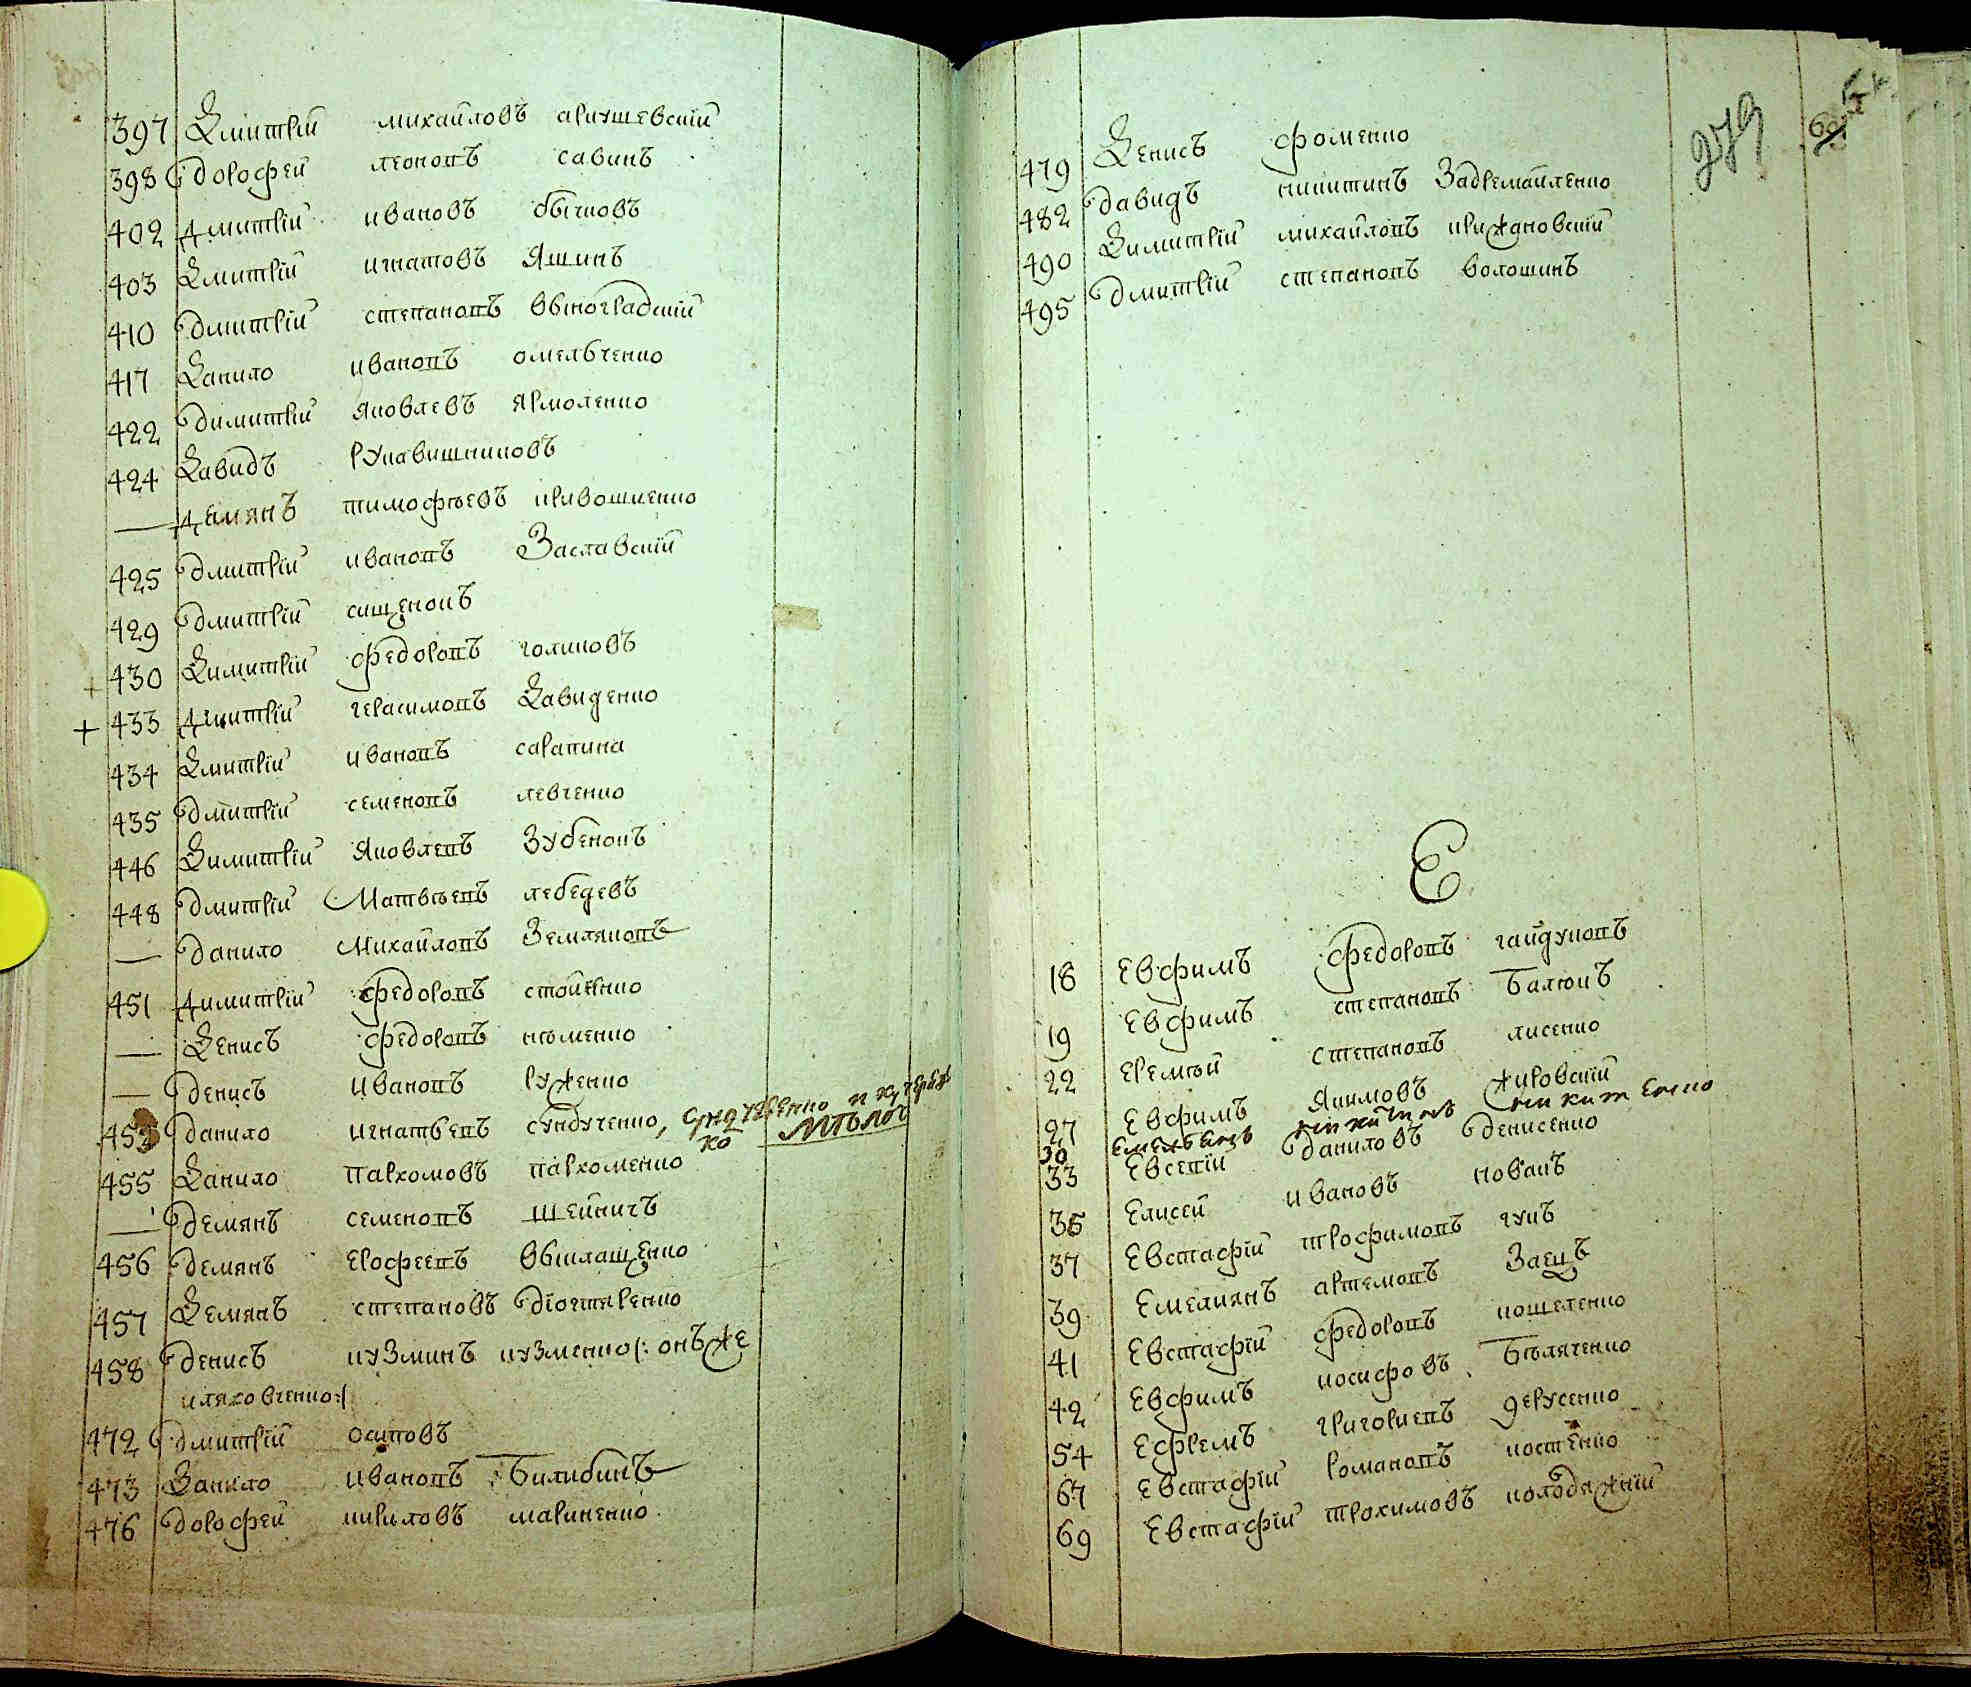 397 Дмитрій михайловъ аркушевскій
398 дорофей леоновъ савинъ
402 Дмитрій ивановъ обычковъ
403 Дмитрій игнатовъ Яшинъ
410 дмитрій степановъ выноградскій
417 Данило ивановъ омельченко
422 димитрій Яковлевъ Ярмоленко
424 Давидъ рукавишниковъ
— демянъ тимофѣевъ кривошиенко
425 дмитрій ивановъ Заславскій
429 дмитрій сищенокъ
+ 430 Димитрій федоровъ голиковъ
+ 433 Дмитрій герасимовъ Давиденко
434 Дмитрій ивановъ сарапина
435 дмитрій семеновъ левченко
446 Димитрій Яковлевъ Зубенокъ
448 дмитрій Матвѣевъ лебедевъ
— данило Михайловъ Землянопъ
451 димитрій федоровъ стойкенко
— Денисъ федоровъ нѣменко
— денисъ ивановъ руженко
данило игнатьевъ сундученко,
455 Данило пархомовъ пархоменко
— демянъ семеновъ шейничъ
456 демянъ ерофеевъ
457 Демянъ степановъ діогтяренко
458 денисъ кузминъ кузменко /: онъ же
кляховченко :/
472 дмитрій осиповъ
473 Данило ивановъ Билибинъ
476 дорофей кириловъ мариненко
279
479 Денисъ фоменко
482 давидъ никитинъ Задремайленко
490 Димитрій михайловъ крижановскій
495 дмитрій степановъ волошинъ
Е
18 Евфимъ федоровъ гайдуковъ
19 Евфимъ степановъ Балюкъ
22 Еремѣй степановъ лисенко
27 Евфимъ Якимовъ жировскій
30 Емельянъ никитинъ никитенко
33 Евсевій даниловъ денисенко
35 Елисей ивановъ новакъ
37 Евстафій трофимовъ гукъ
39 Емелиянъ артемовъ Заецъ
41 Евстафій федоровъ кошеленко
42 Евфимъ иосифовъ Бѣляченко
54 Ефремъ григориевъ дерусенко
67 Евстафій романовъ костенко
69 Евстафій трохимовъ колодяжній